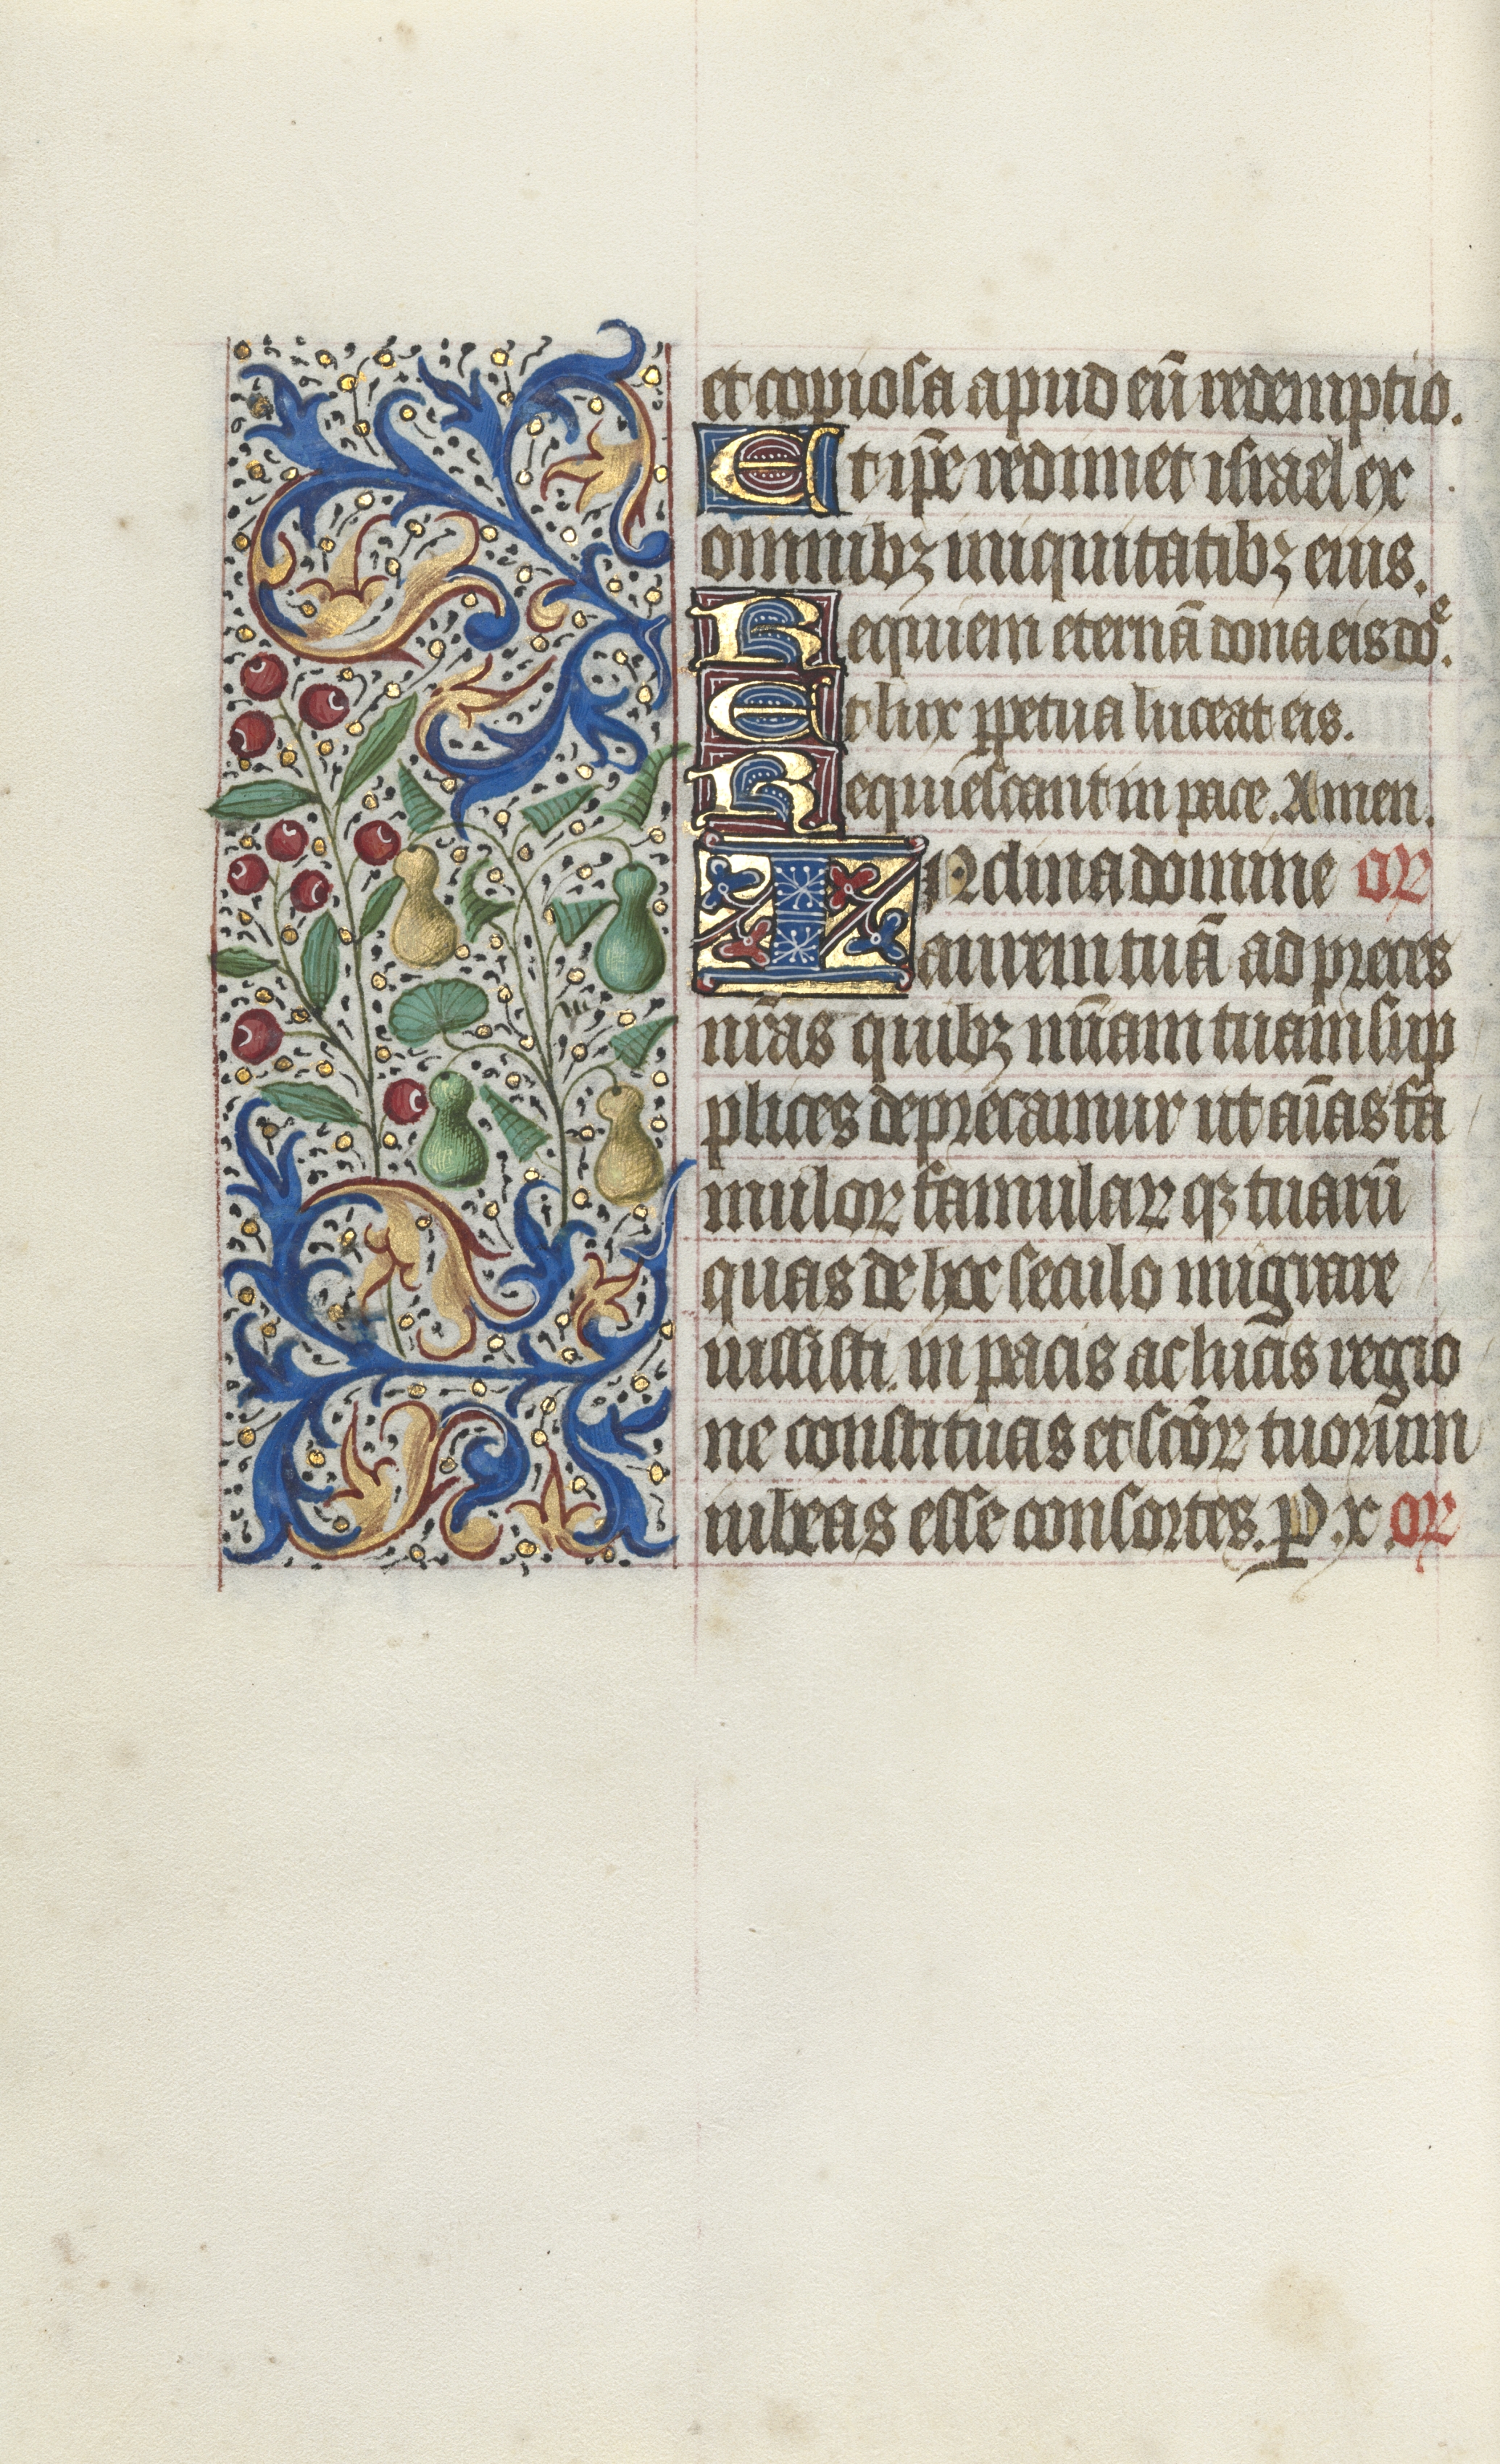 et copiosa apud eū redemptio.
Et ip̄e redimet israel ex
omnibꝫ iniquitatibꝫ eius.
Requiem eternā dona eis doᵉ.
Et lux ꝑpetua luceat eis.
Requiescant in pace. Amen.
INclina domine OR
aurem tuā ad preces
nr̄as quibꝫ mīam tuam sup
plices deprecamur ut aīas fa
mulor famular qꝫ tuarū
quas de hoc seculo migrare
iussisti. in pacis ac lucis regio
ne constituas et sc̄or tuorum
iubeas esse consortes. P. x. OR